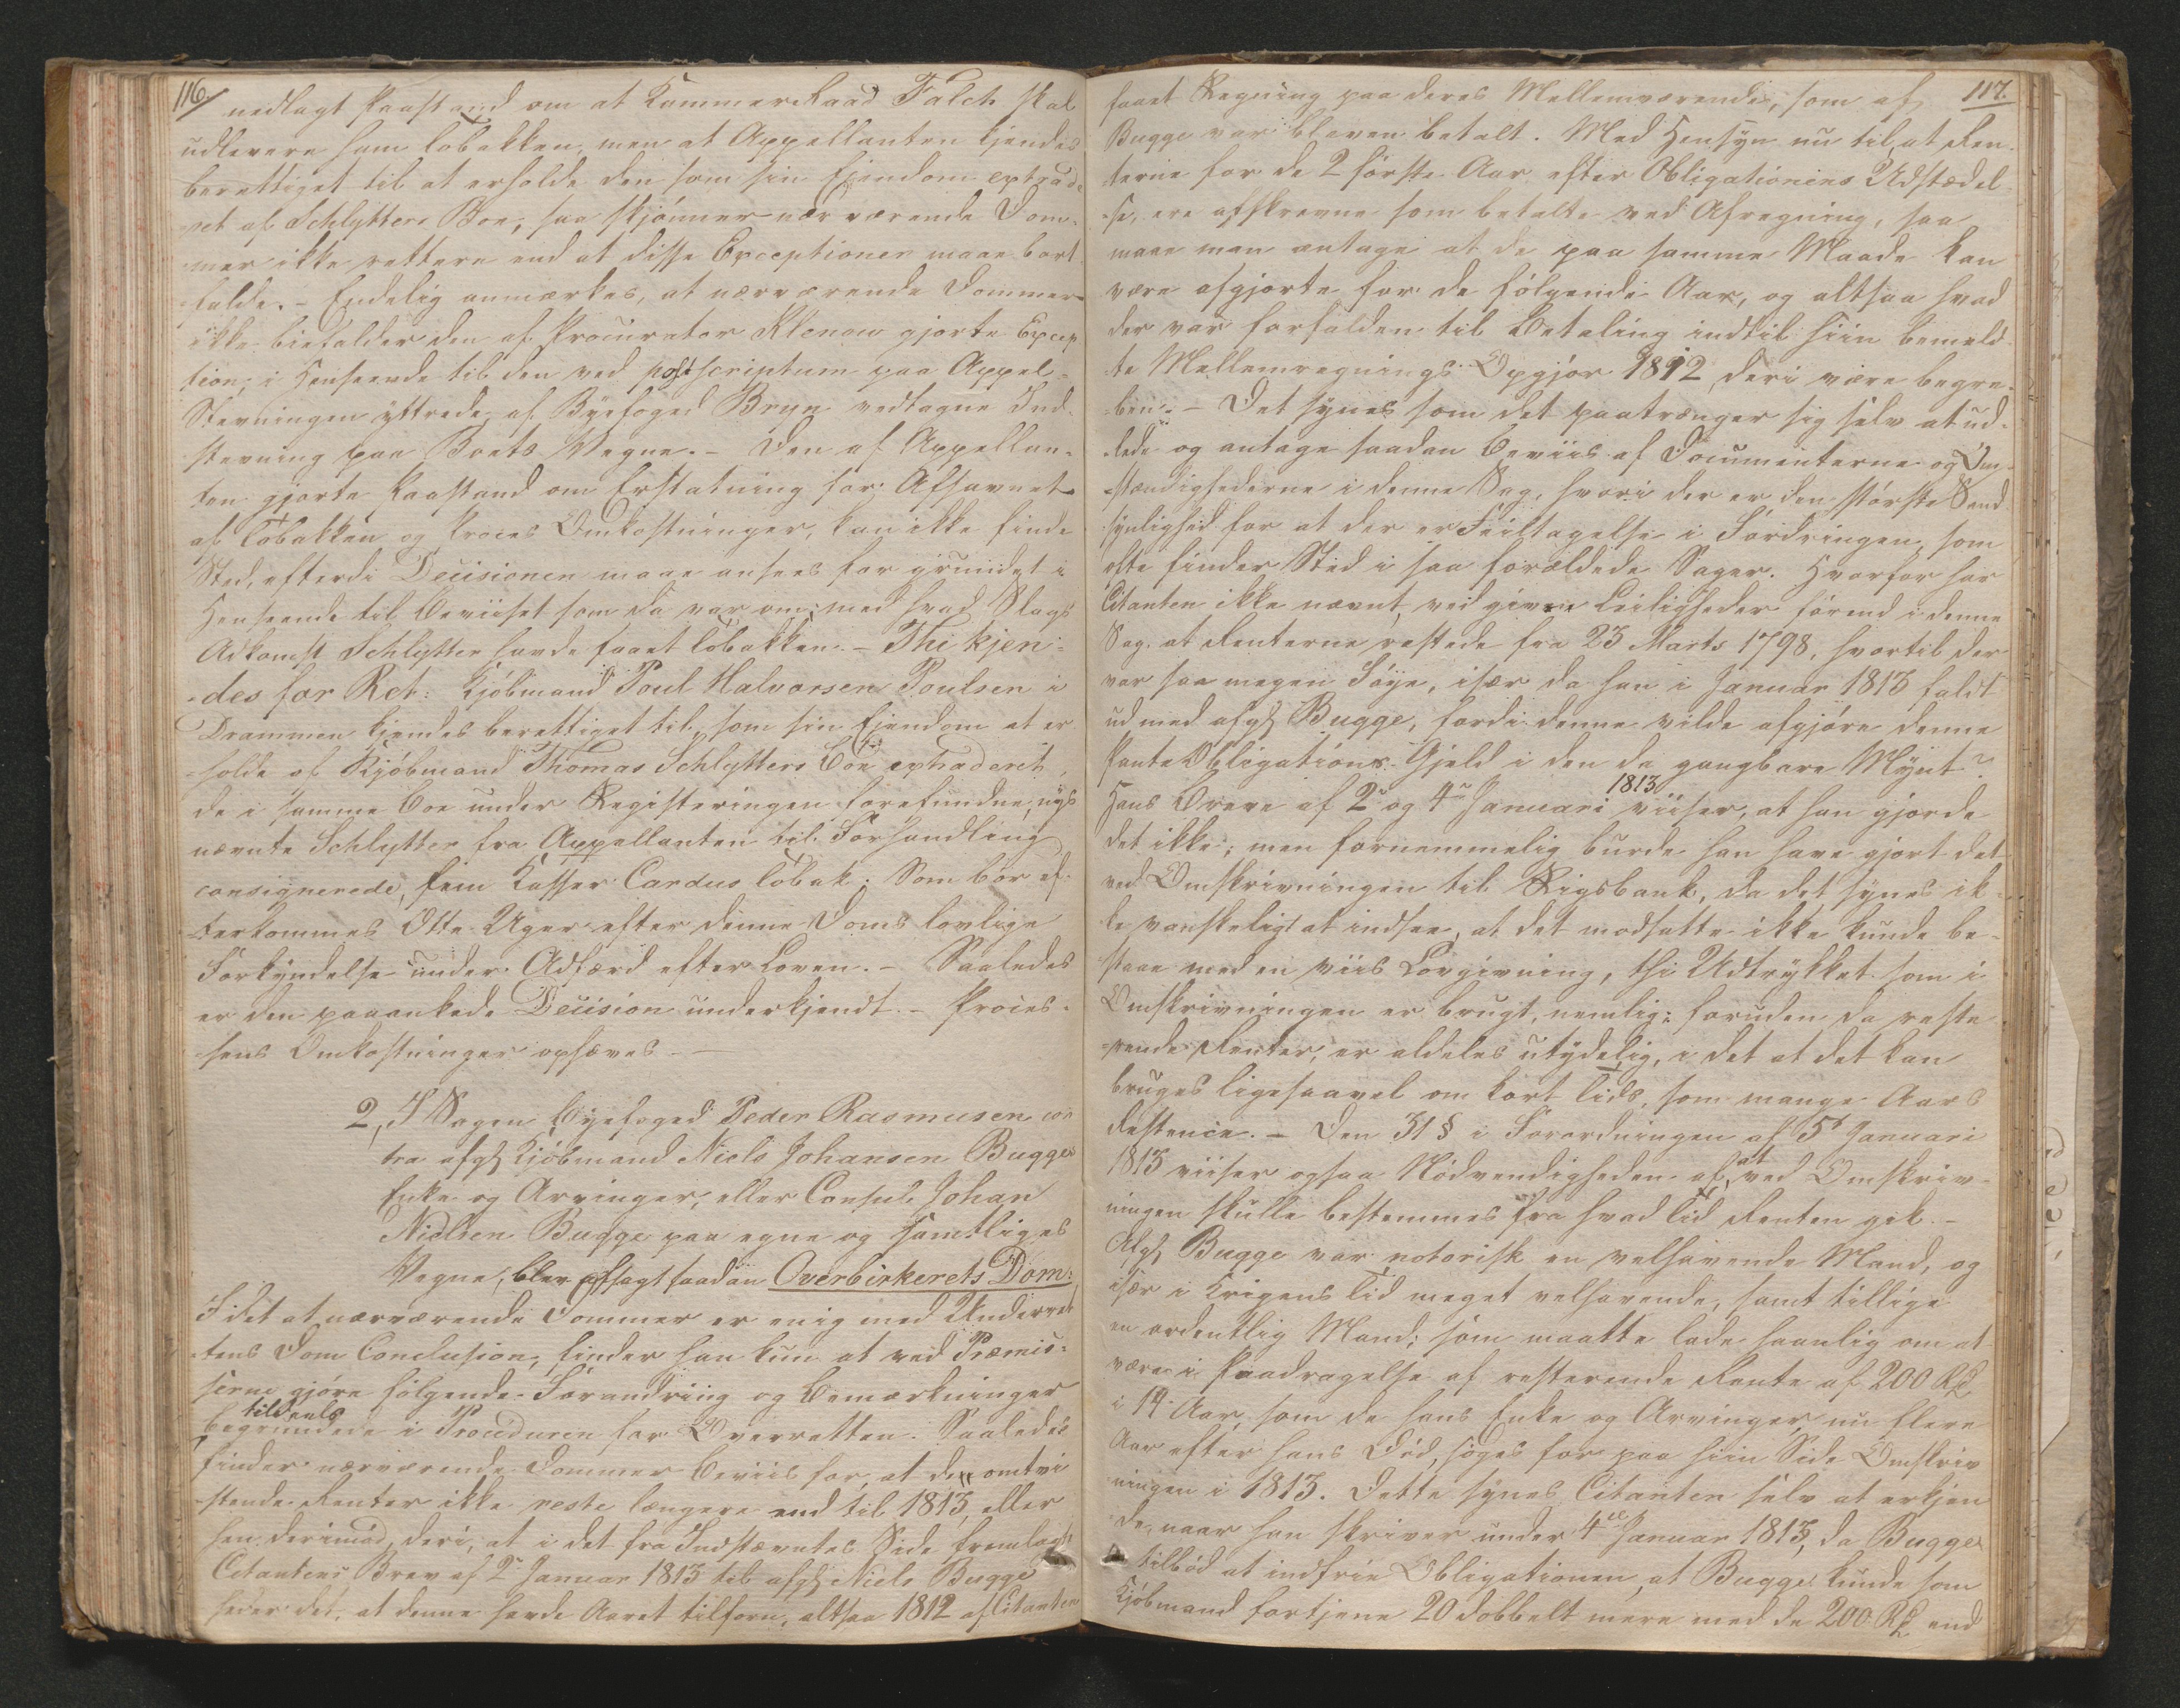 116/
nedlagt Paastand om at KammerRaad Falch skal
udlevere ham Tobakken, men at Appellanten kjendes
berettiget til at erholde den som sin Ejendom extrade-
ret af Schlytters Boe, saa skjønner nærværende Dom-
mer ikke rettere end at disse Exceptioner maae bort-
falde. - Endelig anmærkes, at nærværende Dommer
ikke biefalder den af Procurator Klenow gjorte Excep
tion, i Henseende til den ved postscriptum paa Appel-
Stevningen yttrede, af Byefoged Bryn vedtagne Ind-
stevning paa Boets Vegne. - Den af Appellan-
ten gjorte Paastand om Erstatning for Afsavnet
af Tobakken og Proces Omkostninger, kan ikke finde
Sted, efterdi Decisionen maae ansees for grundet i
Henseende til Beviiset som da var om, med hvad Slags
Adkomst Schlytter havde faaet Tobakken. - Thi kjen-
des for Ret: Kjøbmand Poul Halvorsen Poulsen i
Drammen kjendes berettiget til, som sin Ejendom at er-
holde af Kjøbmand Thomas Schlytters Boe extraderet,
de i samme Boe under Registeringen forefundne, nys
nævnte Schlytter fra Appellanten til Forhandling
consignerede, fem Kasser Cardus Tobak. Som bør ef-
terkommes Otte Uger efter denne Doms lovlige
Forkyndelse under Adfærd efter Loven. - Saaledes
er den paaankede Decision underkjendt. - Proces-
sens Omkostninger ophæves. -
2, I Sagen Byefoged Peder Rasmusen con
tra afg. Kjøbmand Niels Johansen Bugges
Enke og Arvinger, eller Consul Johan
Nielsen Bugge paa egne og samtliges
Vegne, blev afsagt saadan Overbirkerets Dom:
I det at nærværende Dommer er enig med Underret
tens Dom Conclusion, finder han kun at ved Præmis-
serne gjøre følgende Forandring og Bemærkninger
tildeels
begrundede i Proceduren for Overretten. Saaledes
finder nærværende Dommer Beviis for, at den omtvi
stende Renter ikke reste længere end til 1813, eller
hen derimod, deri, at i det fra Indstævntes Side fremlagte
Citantens Brev af 2n Januar 1813 til afg. Niels Bugge
heder det, at denne havde Aaret tilforn, altsaa 1812 af Citanten
117.
faaet Regning paa deres Mellemværende, som af
Bugge var bleven betalt. Med Hensyn nu til, at Ren-
terne for de 2 første Aar efter Obligationens Udstædel-
se, ere afskrevne som betalte ved Afregning, saa
maae man antage at de paa samme Maade kan
være afgjorte for de følgende Aar, og altsaa hvad
der var forfalden til Betaling indtil hiin bemeld
te Mellemregnings Opgjør 1812, deri være begre-
ben. - Det synes som det paatrænger sig selv at ud-
lede og antage saadan Beviis af Documenterne og Om-
stændighederne i denne Sag, hvori der er den største Sand
synlighed for at der er Feiltagelse i Fordringen, som
ofte finder Sted i saa forældede Sager. Hvorfor har
Citanten ikke nævnt ved given Leiligheder førend i denne
Sag, at Renterne restede fra 23 Marts 1798, hvortil der
var saa megen Føje, især da han i Januar 1813 faldt
ud med afg. Bugge, fordi denne vilde afgjøre denne
Pante Obligations Gjeld i den da gangbare Mynt?
Hans Breve af 2n og 4n Januari 1813 viiser, at han gjorde
det ikke; men fornemmelig burde han have gjort det
ved Omskrivningen til Rigsbank, da det synes ik-
ke vanskeligt at indsee, at det modsatte ikke kunde be-
staae med en viis Lovgivning, thi Udtrykket som i
Omskrivningen er brugt, nemlig: foruden da reste
rende Renter, er aldeles utydelig, i det at det kan
bruges ligesaavel om kort Tids, som mange Aars
Restence. - Den 31 § i Forordningen af 5t Januari
1813 viiser ogsaa Nødvendigheden af, at ved Omskriv-
ningen skulle bestemmes fra hvad Tid Renten gik. -
Afg. Bugge var notorisk en velhavende Mand, og
især i Krigens Tid meget velhavende, samt tillige
en ordentlig Mand; som maatte lade haanlig om at
være i Paadragelse af resterende Rente af 200 Rd
i 14 Aar, som da hans Enke og Arvinger nu flere
Aar efter hans Død, søges for paa hiin Side Omskriv
ningen i 1813. Dette synes Citanten selv at erkjen
de, naar han skriver under 4de Januar 1813, da Bugge
tilbød at indfrie Obligationen, at Bugge kunde som
Kjøbmand fortjene 20 dobbelt mere med de 200 Rd end